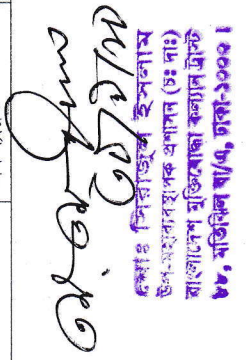 মোঃ সিরাজুল ইসলাম
উপ-মহাব্যবস্থাপক প্রশাসন (চঃ দাঃ)
বাংলাদেশ মুক্তিযোদ্ধা কল্যাণ ট্রাস্ট
৮৮, মতিঝিল বা/এ, ঢাকা-১০০০।